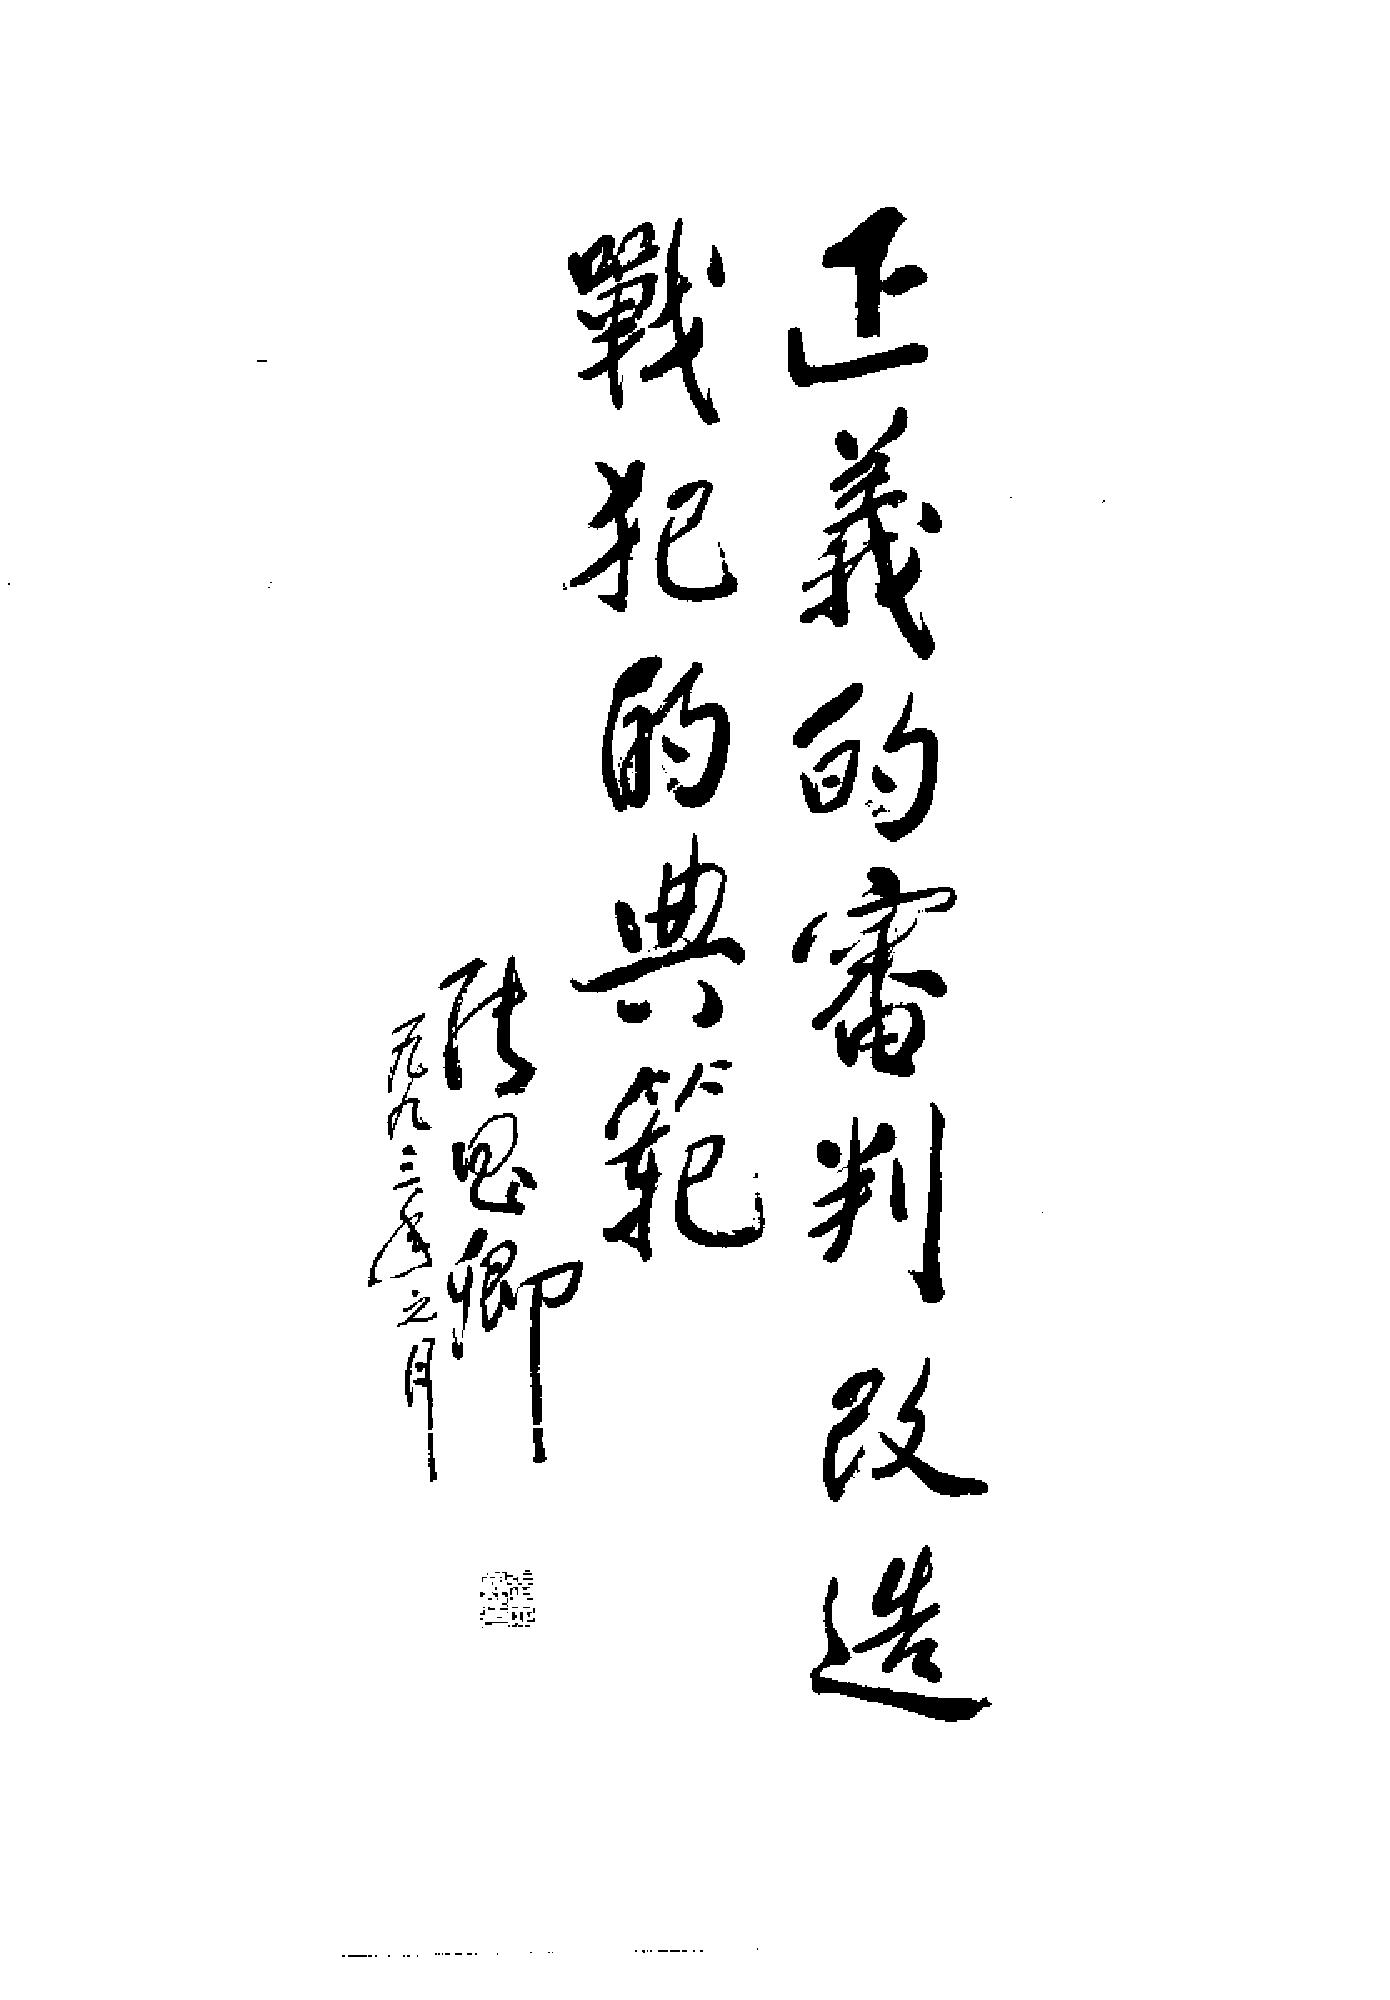 正義的審判改造
戰犯的典範
張思卿
一九九三年元月